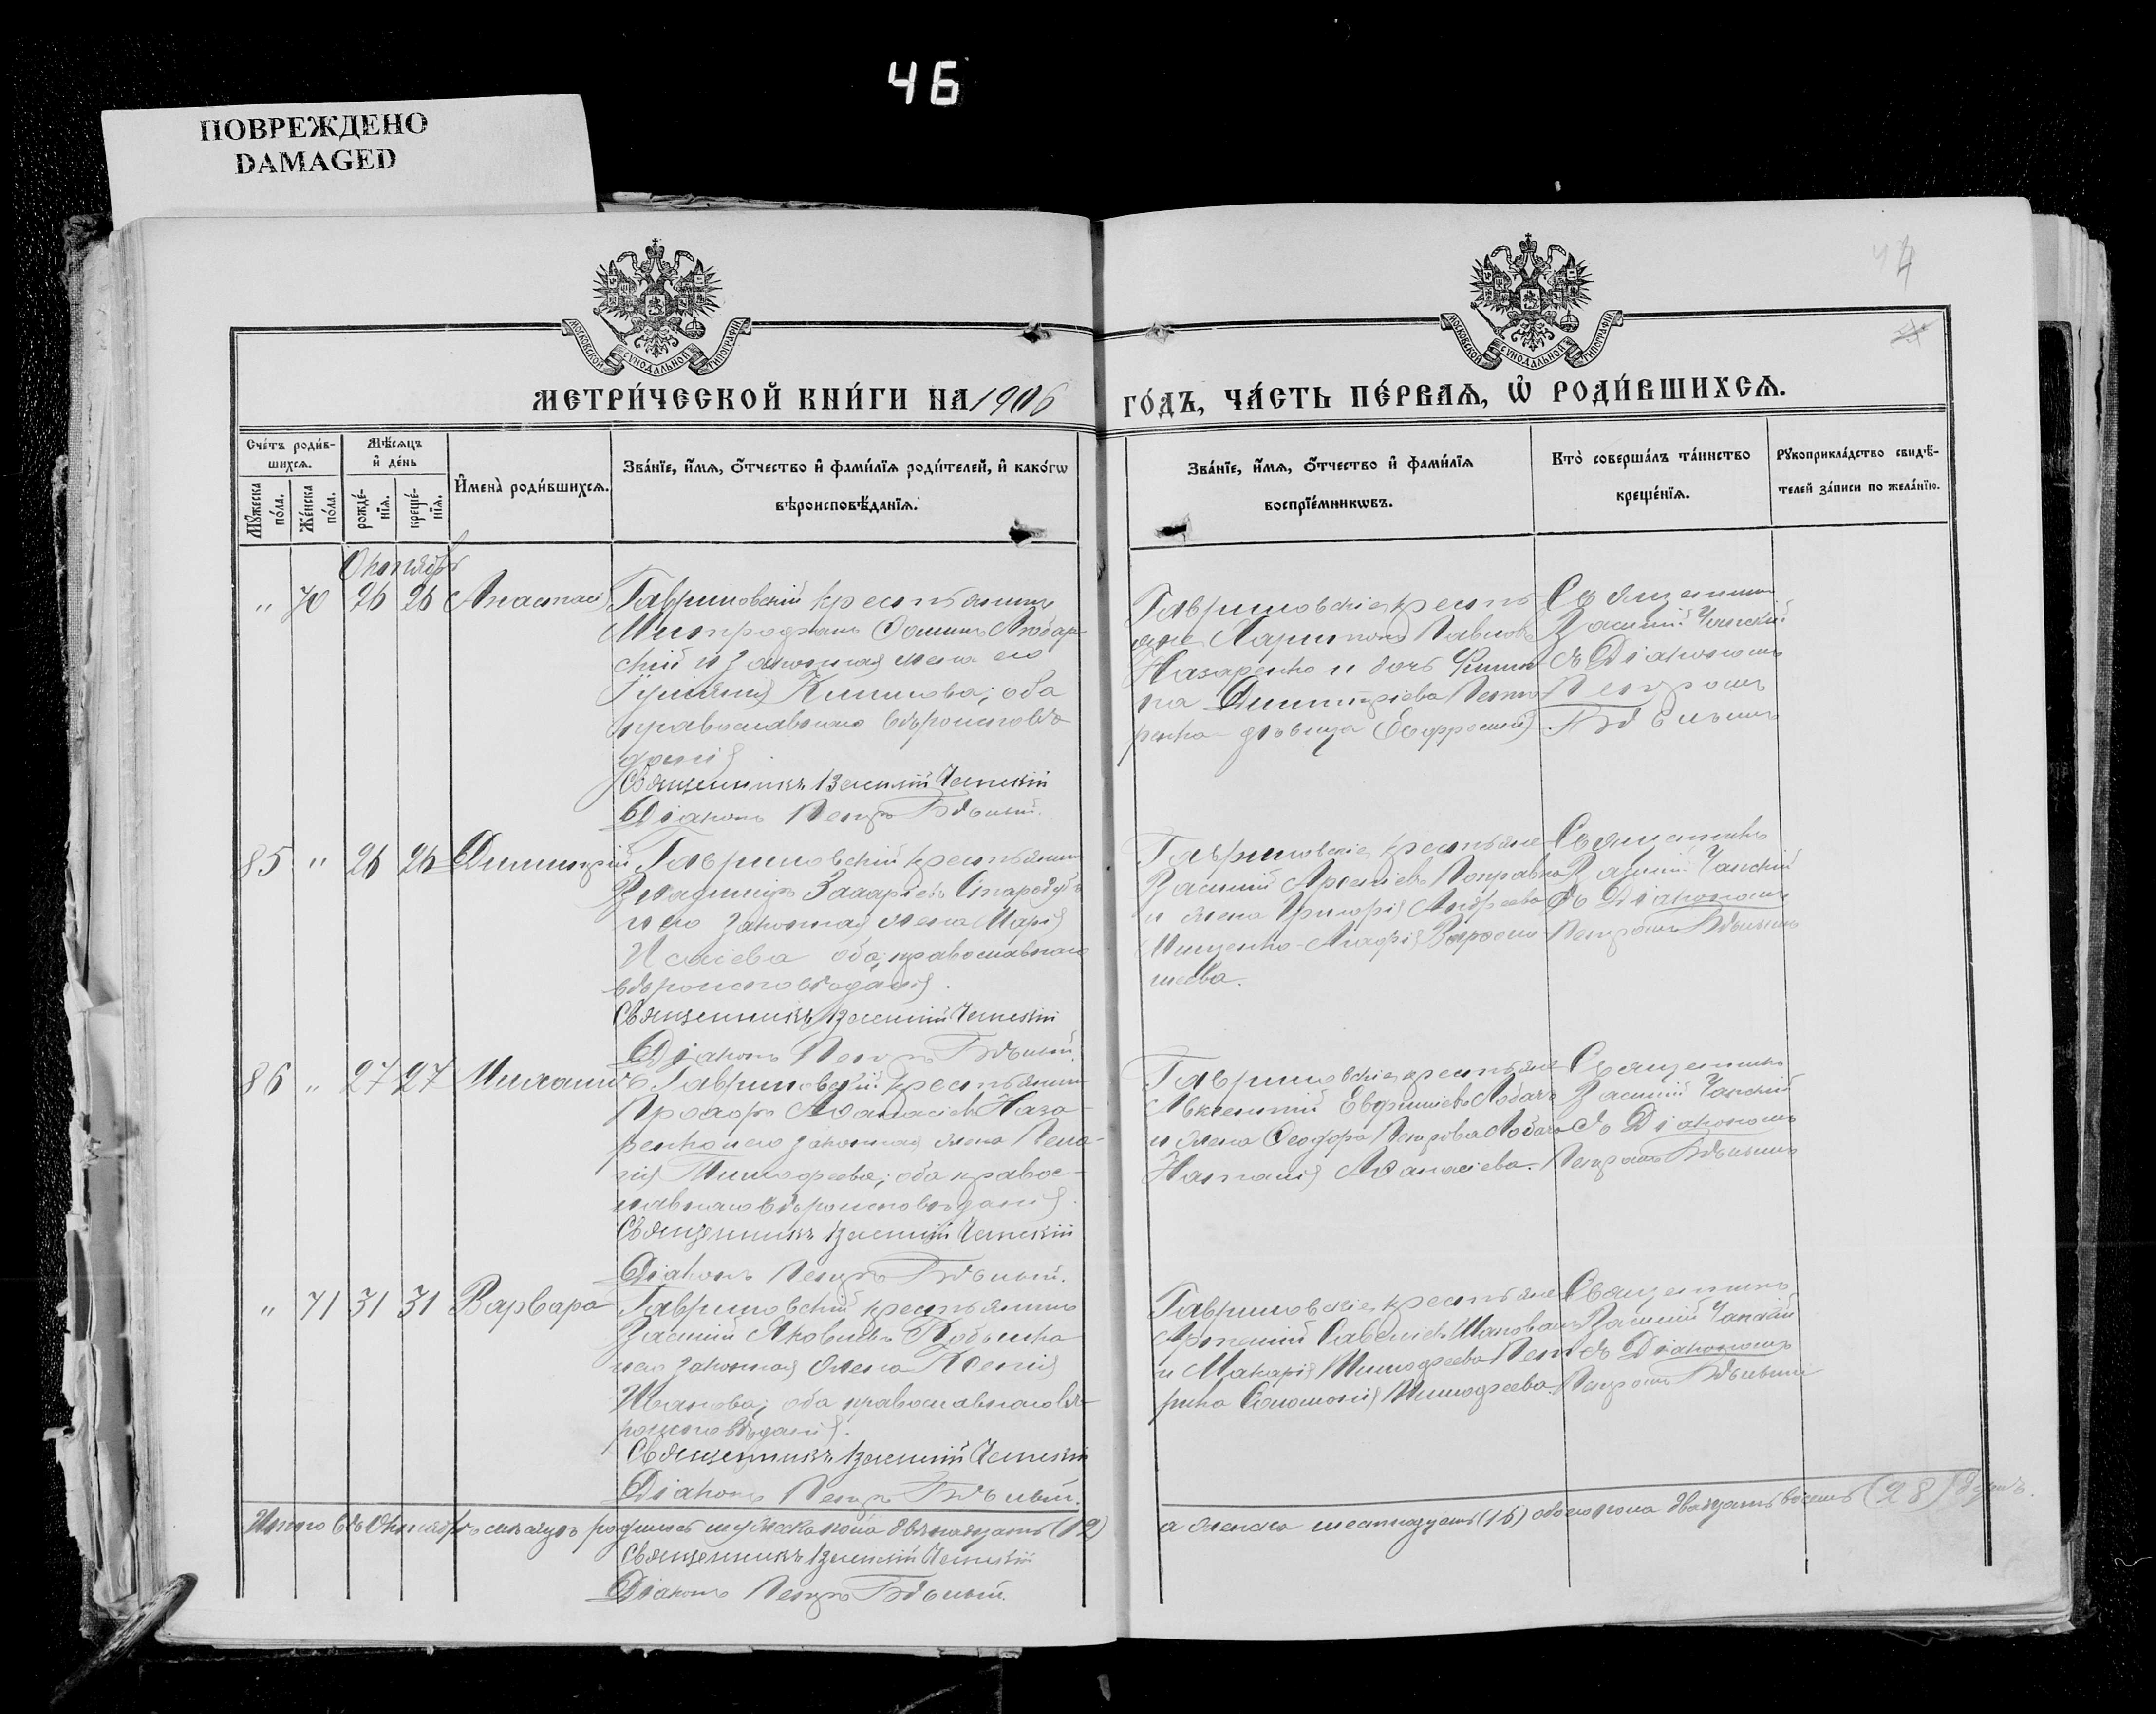 46
ПОВРЕЖДЕНО
DAMAGED
47
МОСКОВСКОЙ СѴНОДАЛЬНОЙ ТИПОГРАФІИ
МОСКОВСКОЙ СѴНОДАЛЬНОЙ ТИПОГРАФІИ
МЕТРИ́ЧЕСКОЙ КНИ́ГИ НА 1906
ГО́ДЪ, ЧА́СТЬ ПЕ́РВАѦ, Ѽ РОДИ́ВШИХСѦ.
Сче́тъ роди́в-
шихсѧ.
Мѣ́сѧцъ
и҆ де́нь
И҆мена̀ роди́вшихсѧ.
Зва́нїе, и҆́мѧ, ѻ҆́тчество и҆ фами́лїѧ роди́телей, и҆ како́гѡ
вѣроисповѣ́данїѧ.
Мꙋ́жеска по́ла.
Же́нска по́ла.
рожде́-нїѧ.
креще́-нїѧ.
Зва́нїе, и҆́мѧ, ѻ҆́тчество и҆ фами́лїѧ
воспрїе́мникѡвъ.
Кто̀ соверша́лъ та́инство
креще́нїѧ.
Рꙋкоприкла́дство свидѣ́-
телей за́писи по жела́нїю.
Октябрь
" 70 26 26 Анастасія
Гавриловскій крестьянинъ
Митрофанъ Ѳоминъ Любар-
скій и законная жена его
Климова; оба
православнаго вѣроисповѣ-
данія
Священникъ Василій Чапскій
Діаконъ Петръ Бѣлый.
Гавриловскіе крестья-
яне Харитонъ Павловъ
Назаренко и дочь Филип-
па Димитріева
дѣвица Евфросинія
Священникъ
Василій Чапскій
съ Діакономъ
Петромъ
Бѣлымъ
85 " 26 26 Димитрій
Гавриловскій крестьянинъ
Владиміръ Захаріевъ Стародубъ
и его законная жена Марія
Исаіева оба православнаго
вѣроисповѣданія.
Священникъ Василій Чапскій
Діаконъ Петръ Бѣлый.
Гавриловскіе крестьяне
Василій Арсеніевъ
и жена Григорія Андреева
Мищенко - Агафія Варѳоло-
меева.
Священникъ
Василій Чапскій
съ Діакономъ
Петромъ Бѣлымъ
86 " 27 27 Михаилъ
Гавриловскій крестьянинъ
Прохоръ Аѳанасіевъ Наза-
ренко и его законная жена Пела-
гія Тимоѳеева; оба правос-
лавнаго вѣроисповѣданія.
Священникъ Василій Чапскій
Діаконъ Петръ Бѣлый.
Гавриловскіе крестьяне
Авксентій Евфиміевъ Лобачъ
и жена Ѳеодора Петрова Лобача
Наталія Аѳанасіева.
Священникъ
Василій Чапскій
съ Діакономъ
Петромъ Бѣлымъ
" 71 31 31 Варвара
Гавриловскій крестьянинъ
Василій Яковлевъ
и его законная жена Ксенія
Иванова; оба православнаго вѣ-
роисповѣданія.
Священникъ Василій Чапскій
Діаконъ Петръ Бѣлый.
Гавриловскіе крестьяне
Артемій Савеліевъ
и Макарія Тимоѳеева
Соломонія Тимоѳеева.
Священникъ
Василій Чапскій
съ Діакономъ
Петромъ Бѣлымъ
Итого въ Октябрѣ мѣсяцѣ родилось мужеска пола двѣнадцать (12)
а женска шестнадцать (16) обоего пола двадцать восемь (28) душъ.
Священникъ Василій Чапскій
Діаконъ Петръ Бѣлый.